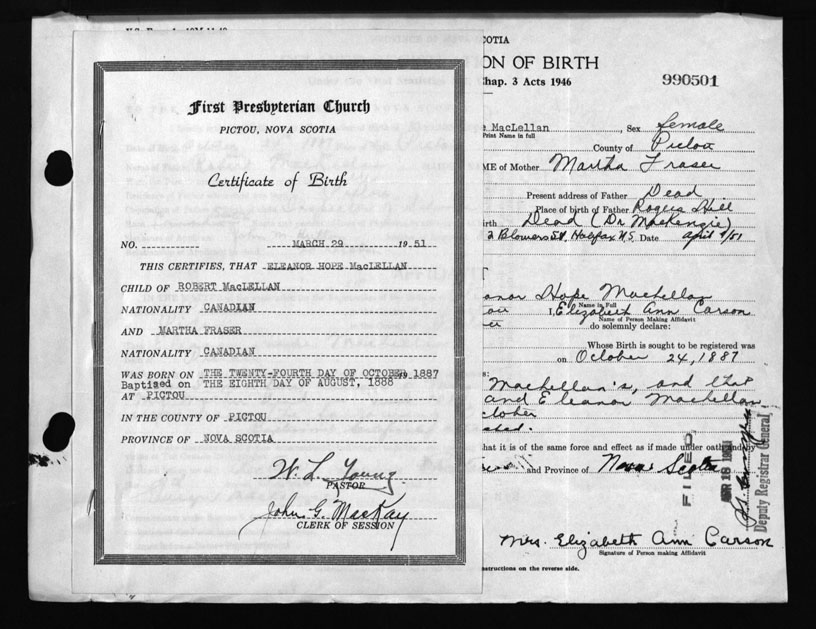 First Presbyterian Church
PICTOU, NOVA SCOTIA
Certificate of Birth
NO. MARCH 29 1951
THIS CERTIFIES, THAT ELEANOR HOPE MacLELLAN
CHILD OF ROBERT MacLELLAN
NATIONALITY CANADIAN
AND MARTHA FRASER
NATIONALITY CANADIAN
WAS BORN ON THE TWENTY-FOURTH DAY OF OCTOBER 1887
Baptised on THE EIGHTH DAY OF AUGUST, 1888
AT PICTOU
IN THE COUNTY OF PICTOU
PROVINCE OF NOVA SCOTIA
W. L. Young
PASTOR
John G. MacKay
CLERK OF SESSION
COTIA
ON OF BIRTH
Chap. 3 Acts 1946 990501
e MacLellan, Sex female
Print Name in full
County of Pictou
ME of Mother Martha Fraser
Present address of Father Dead
Place of birth of Father Rogers Hill
irth Dead (Dr Mackenzie)
2 Blowers St, Halifax N.S. Date April 9/51
anor Hope Maclellan
Name in Full
ou I, Elizabeth Ann Carson
Name of Person Making Affidavit
do solemnly declare:
Whose Birth is sought to be registered was
on October 24, 1887
Maclellan's, and that
and Eleanor Maclellan
ctober
hat it is of the same force and effect as if made under oath and by
and Province of Nova Scotia
FILED
Deputy Registrar General
Mrs. Elizabeth Ann Carson
Signature of Person making Affidavit
nstructions on the reverse side.